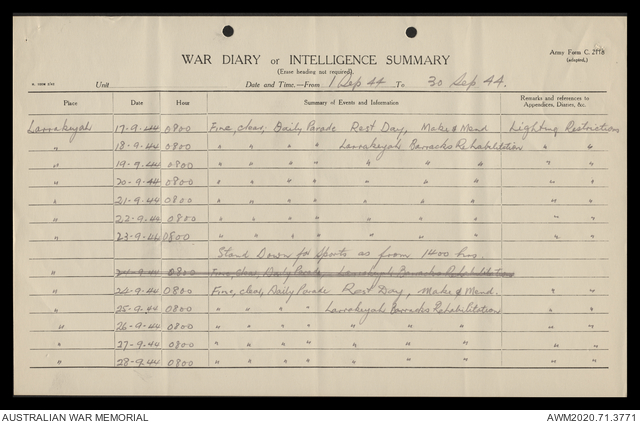 WAR DIARY or INTELLIGENCE SUMMARY
Army Form C. 2118
(adapted.)
(Erase heading not required).
Unit
Date and Time.—From 1 Sep 44 To 30 Sep 44.
Place Date Hour Summary of Events and Information Remarks and references to Appendices, Diaries, &c.
Larrakeyah 17-9-44 0800 Fine, clear, Daily Parade Rest Day, Make & Mend Lighting Restrictions
" 18-9-44 0800 " " " " Larrakeyah Barracks Rehabilitation " "
" 19-9-44 0800 " " " " " " " " "
" 20-9-44 0800 " " " " " " " " "
" 21-9-44 0800 " " " " " " " " "
" 22-9-44 0800 " " " " " " " " "
" 23-9-44 0800 " " " " " " " " "
Stand Down for Sports as from 1400 hrs.
" 24-9-44 0800 Fine, clear, Daily Parade Larrakeyah Barracks Rehabilitation
" 24-9-44 0800 Fine, clear, Daily Parade Rest Day, Make & Mend. " "
" 25-9-44 0800 " " " " Larrakeyah Barracks Rehabilitation " "
" 26-9-44 0800 " " " " " " " " "
" 27-9-44 0800 " " " " " " " " "
" 28-9-44 0800 " " " " " " " " "
AUSTRALIAN WAR MEMORIAL
AWM2020.71.3771